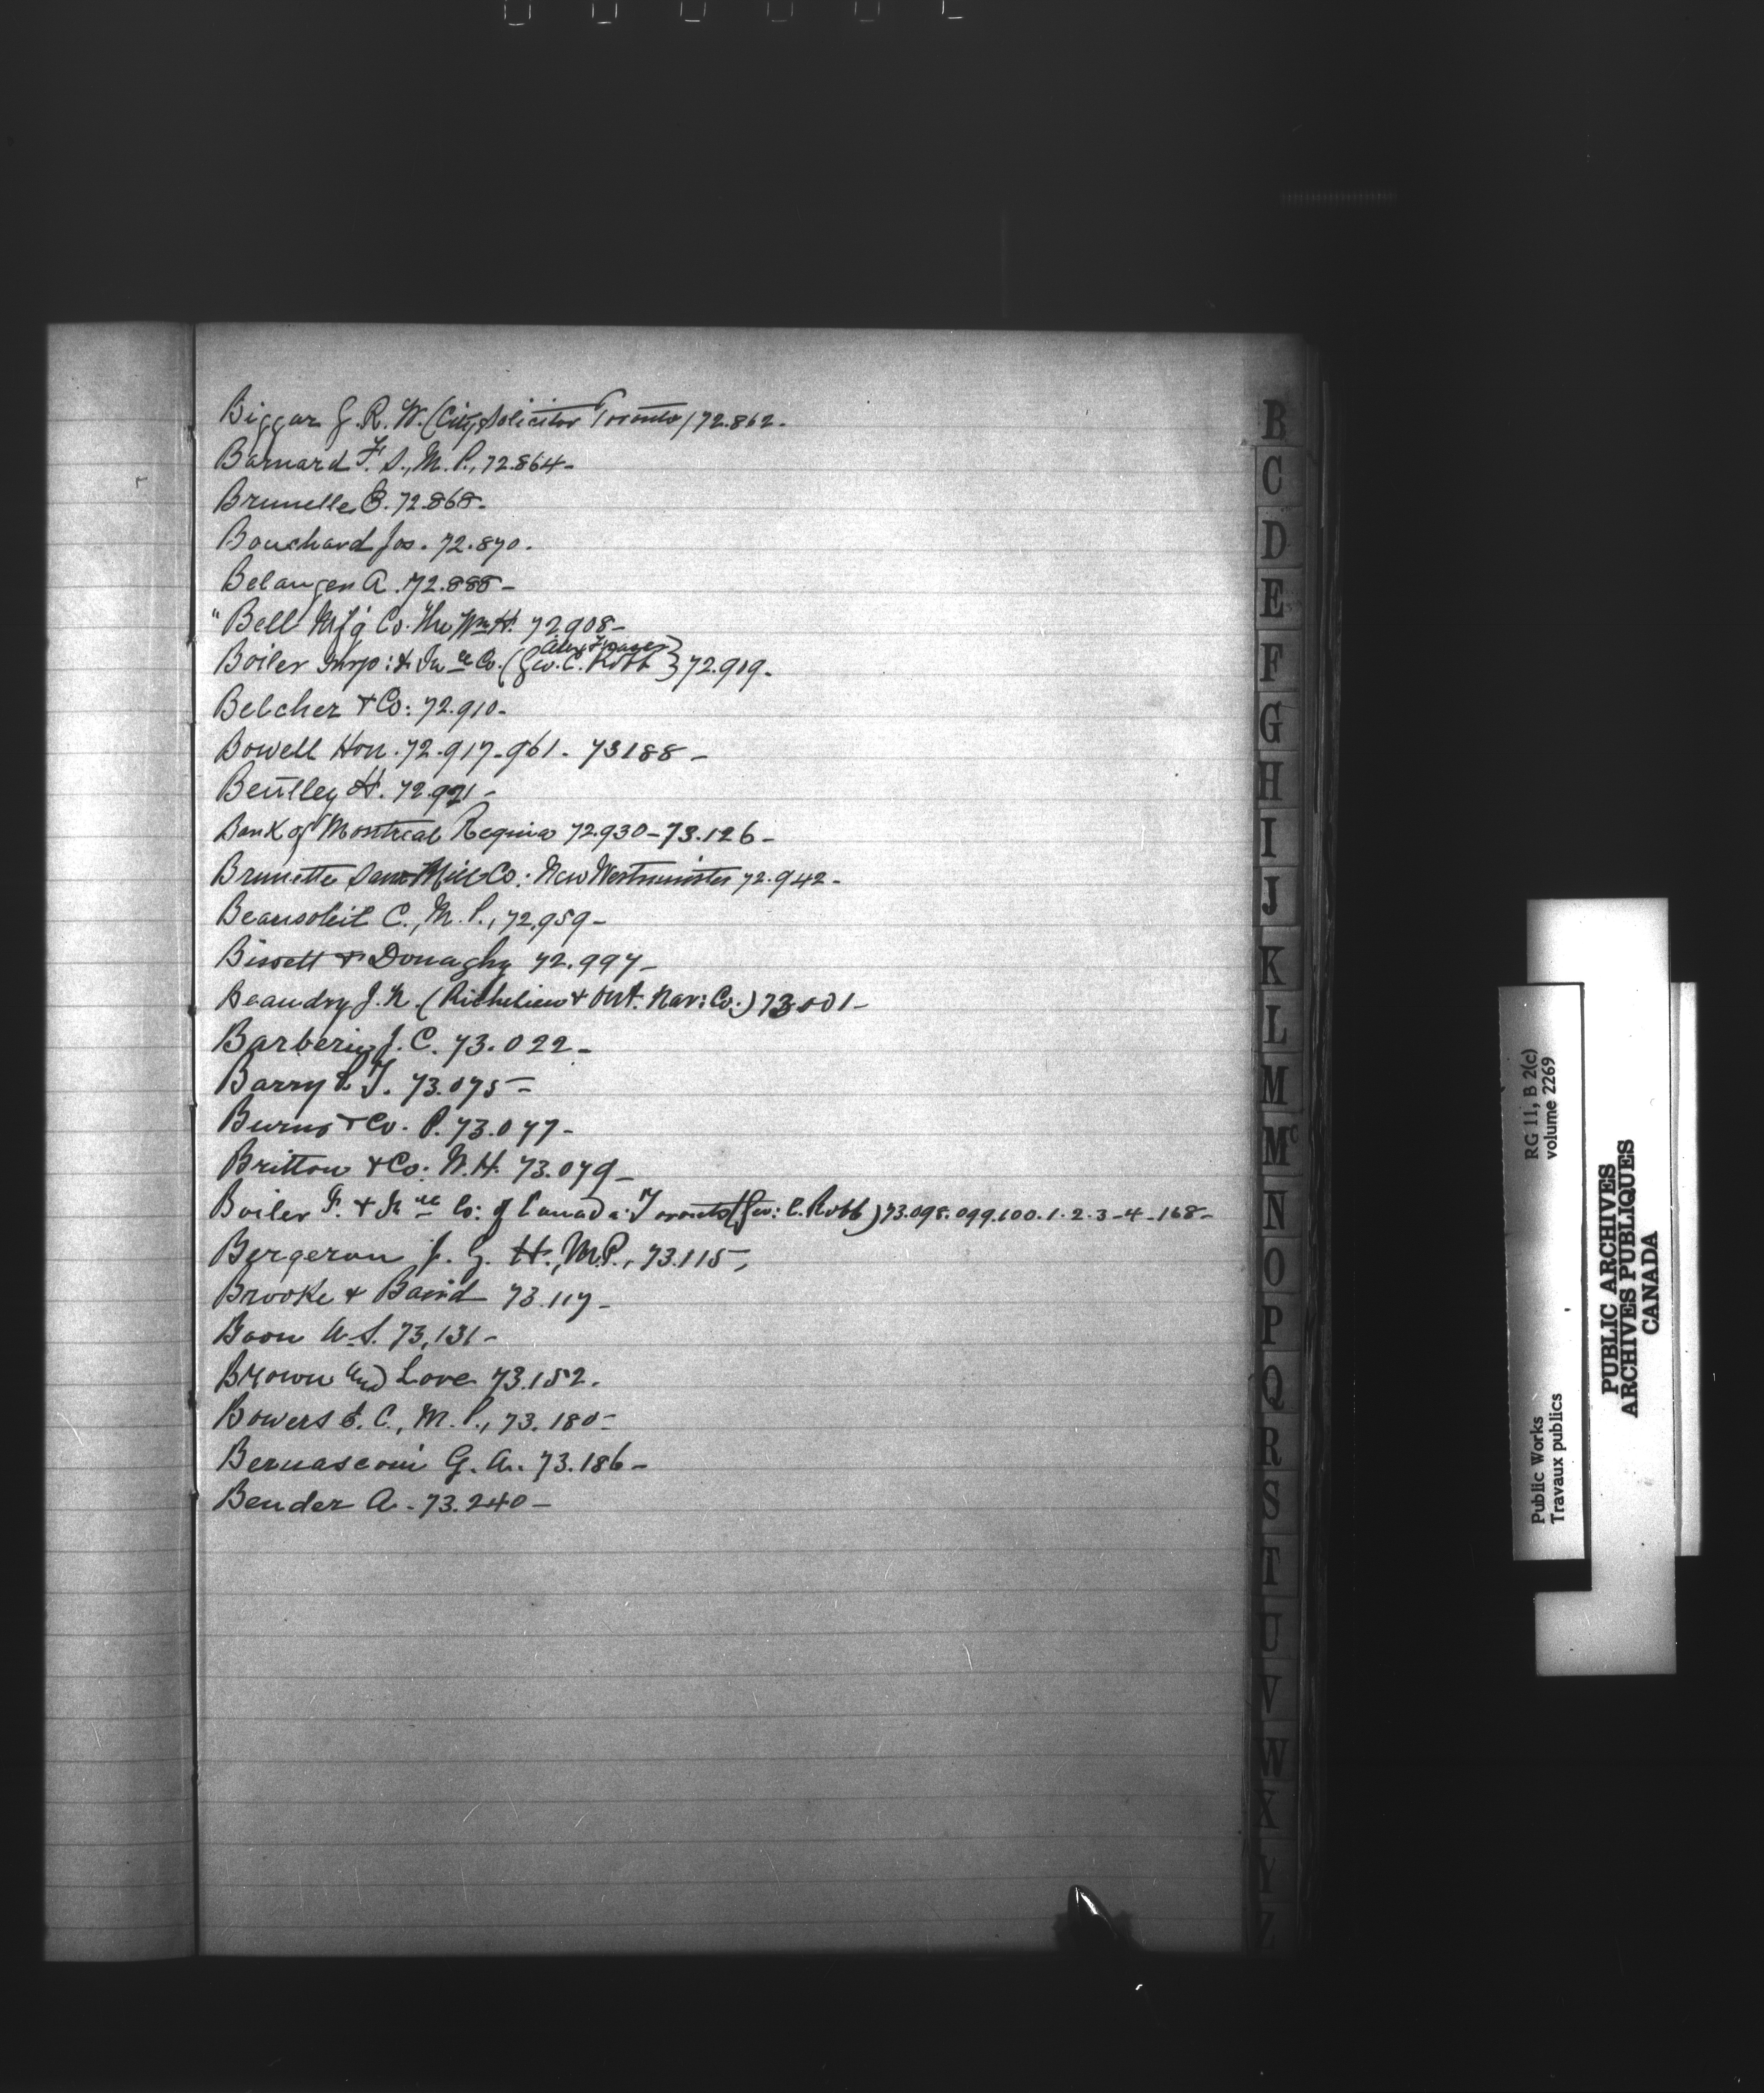 Biggar J. R. W. (City Solicitor Toronto) 72.862-
Barnard F. S., M. P., 72.864-
Brunelle E. 72.868-
Bouchard Jos. 72.870.
Belanger A. 72.888-
"Bell Mf'g Co. The Wm H. 72.908-
Alex Fraser
Boiler Insp: & In ce Co. (Geo. C. Robb } 72.909-
Belcher & Co: 72.910-
Bowell Hon. 72.917-961- 73188-
Bentley H. 72.921-
Bank of Montreal Regina 72.930-73.126-
Brunette Saw Mill Co: New Westminster 72.942-
Beausoleil C., M. P., 72.959-
Bissett & Donaghy 72.997-
Beaudry J. N. (Richelieu & Ont. Nav: Co.) 73.001-
Barberie J. C. 73.022-
Barry P. T. 73.075-
Burns & Co. P. 73.077-
Britton & Co: W. H. 73.079-
Boiler I. & In ce Co: of Canada Toronto (Geo: C. Robb) 73.098.099.100.1.2.3-4-168-
Bergeron J. G. H., M.P., 73.115,
Brooke & Baird 73.117-
Boon W. S. 73.131-
Brown and Love 73.152.
Bowers E. C., M. P., 73.180-
Bernasconi G. A. 73.186-
Bender A. 73.240-
B
C
D
E
F
G
H
I
J
K
L
M
Mc
N
O
P
Q
R
S
T
U
V
W
X
Y
Z
RG 11, B 2(c)
volume 2269
Public Works
Travaux publics
PUBLIC ARCHIVES
ARCHIVES PUBLIQUES
CANADA